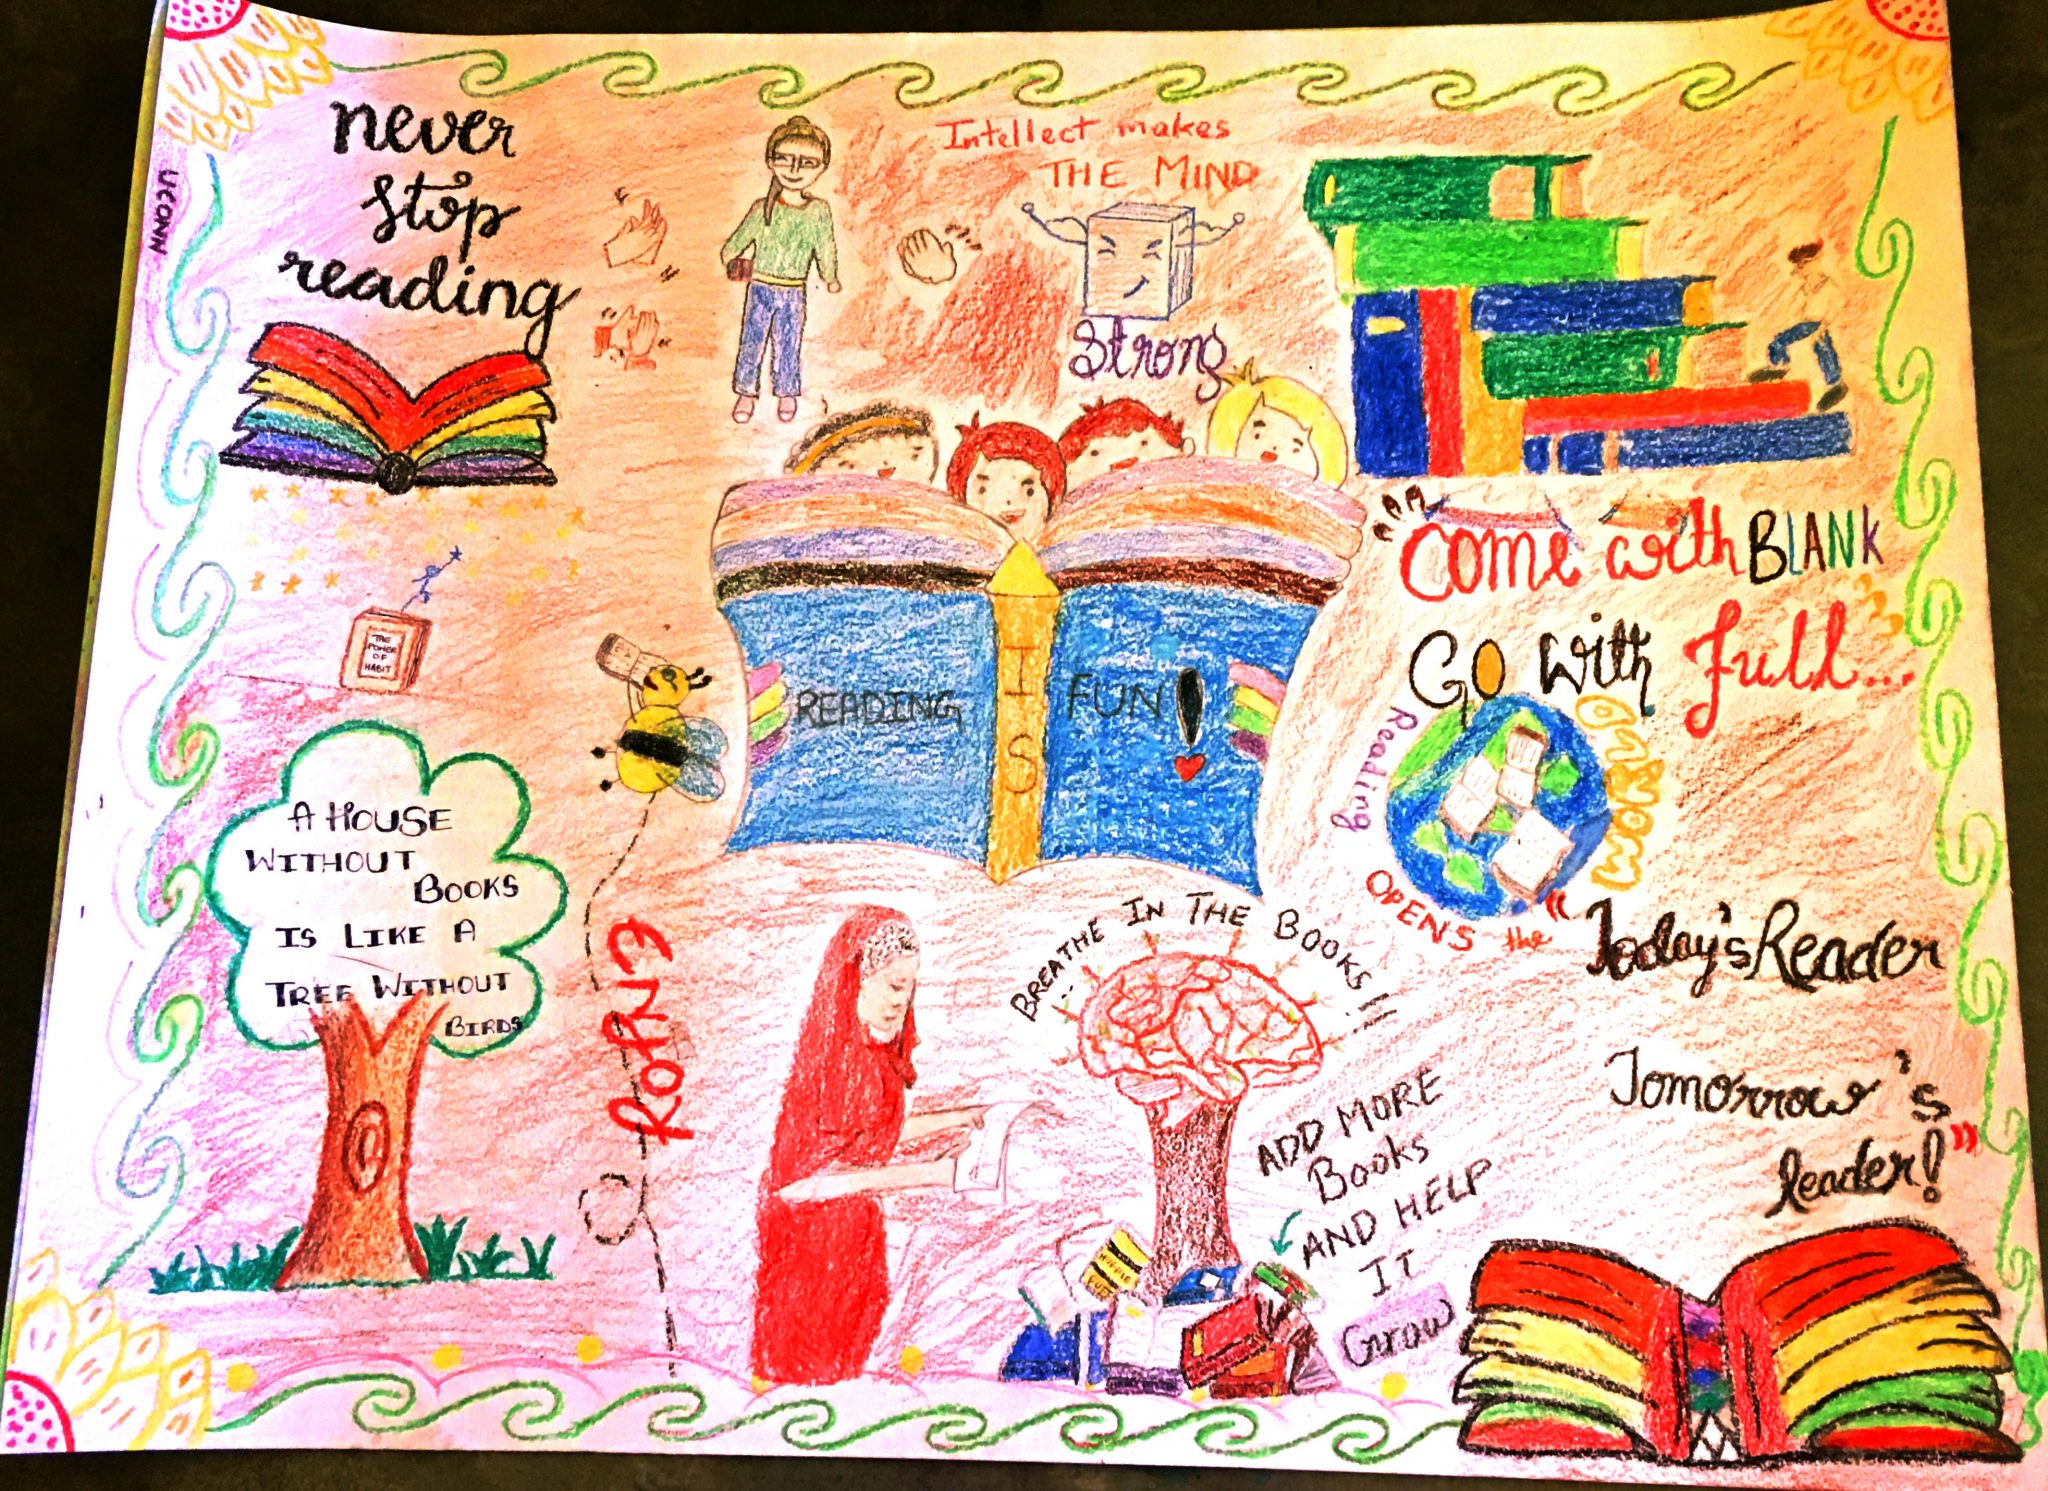 UCONN
never
stop
reading
Intellect makes
THE MIND
Strong
READING IS FUN!
"Come with BLANK
Go with full..."
THE
POWER
OF
HABIT
Reading
OPENS the
WORLD
A HOUSE
WITHOUT
BOOKS
IS LIKE A
TREE WITHOUT
BIRDS
ENJOY
BREATHE IN THE BOOKS!!
ADD MORE
Books
AND HELP
IT
Grow
"Today's Reader
Tomorrow's
leader!"